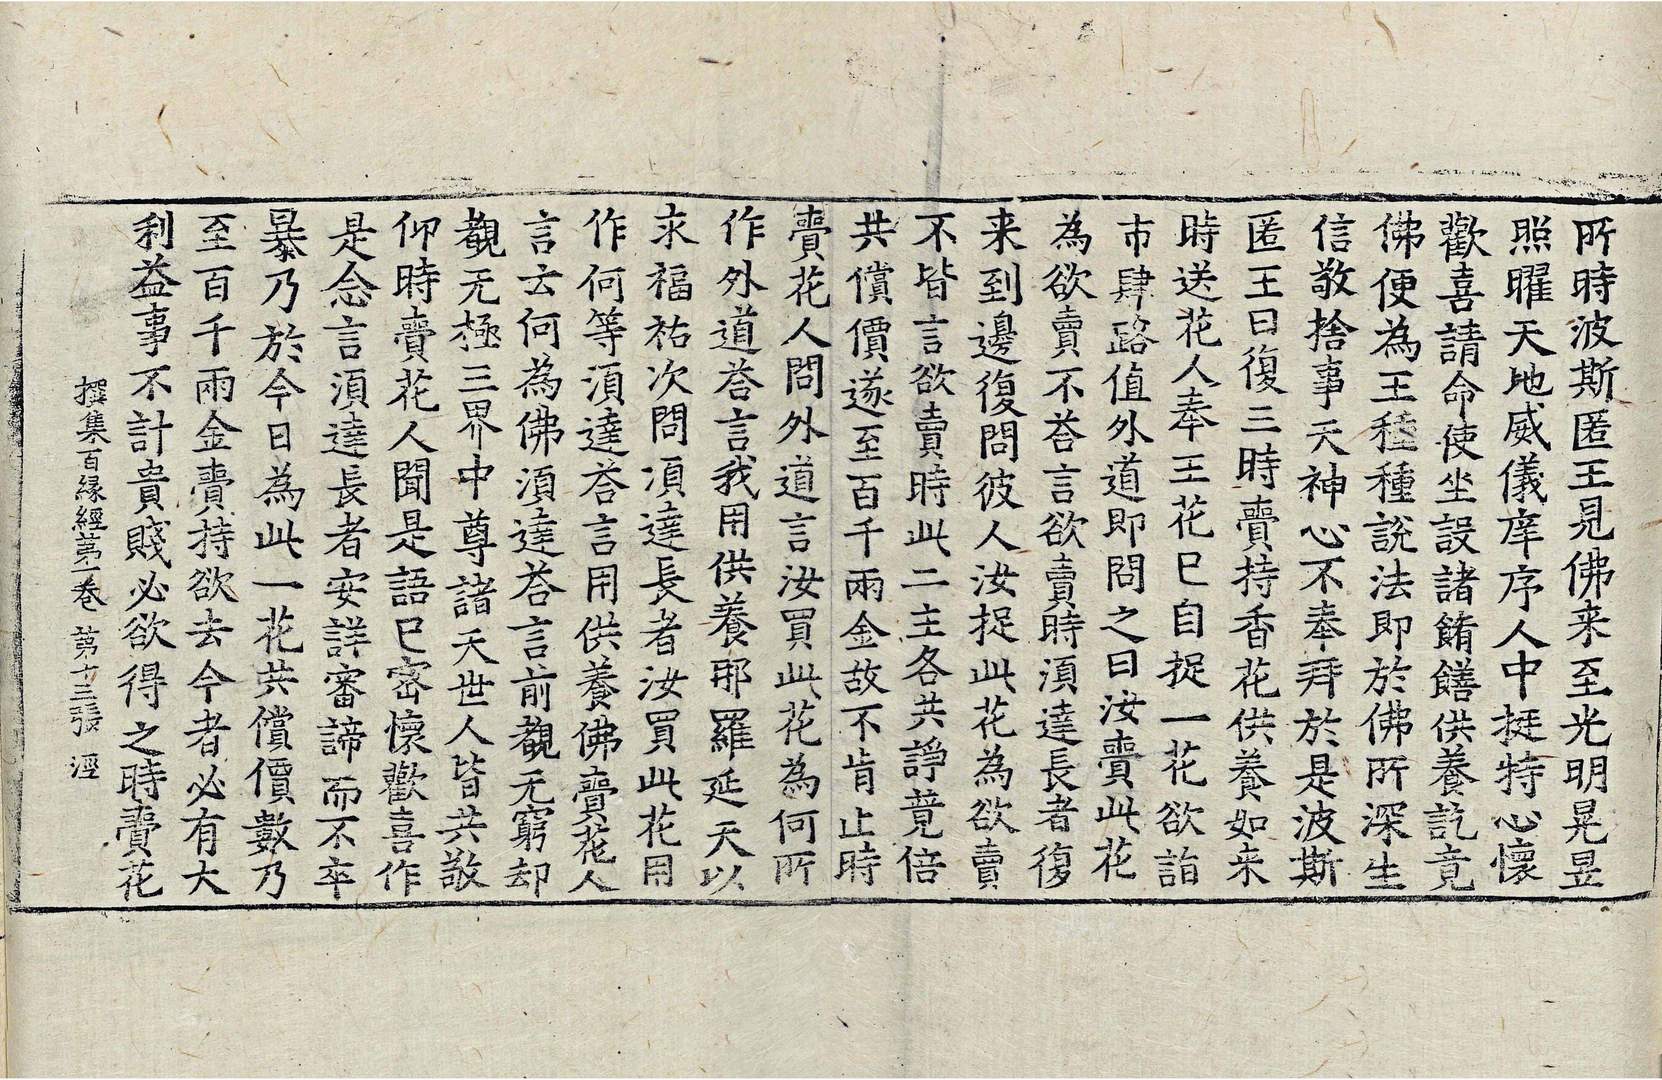 所時波斯匿王見佛来至光明晃昱
照曜天地威儀庠序人中挺特心懷
歡喜請命使坐設諸餚饍供養訖竟
佛便為王種種說法即於佛所深生
信敬捨事天神心不奉拜於是波斯
匿王日復三時賷持香花供養如来
時送花人奉王花已自捉一花欲詣
市肆路值外道即問之曰汝賷此花
為欲賣不荅言欲賣時須達長者復
来到邊復問彼人汝捉此花為欲賣
不皆言欲賣時此二主各共諍竟倍
共償價遂至百千兩金故不肯止時
賷花人問外道言汝買此花為何所
作外道荅言我用供養那羅延天以
求福祐次問須達長者汝買此花用
作何等須達荅言用供養佛賷花人
言云何為佛須達荅言前覩无窮却
覩无極三界中尊諸天世人皆共敬
仰時賣花人聞是語已密懷歡喜作
是念言須達長者安詳審諦而不卒
暴乃於今日為此一花共償價數乃
至百千兩金賷持欲去今者必有大
利益事不計貴賤必欲得之時賷花
撰集百緣經第一卷 第十三張 涇